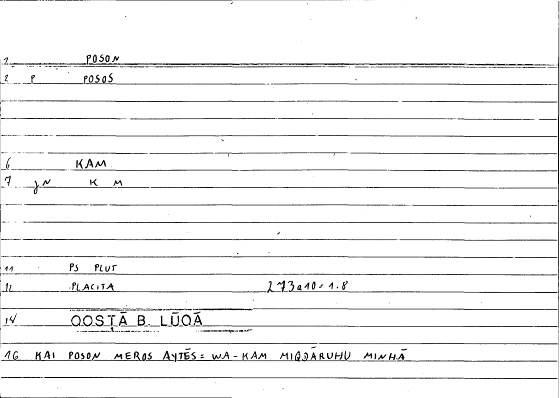 1 POSON
2 P POSOS
6 KAM
7 γN K M
11 PS PLUT
12 PLACITA 273a10 = 1.8
14 QOSṬĀ B. LŪQĀ
16 KAI POSON MEROS AYTĒS = WA-KAM MIQDĀRUHU MINHĀ